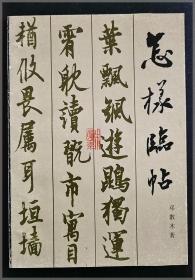 怎樣臨帖
邓散木著
葉飄颻遊鵾獨運
霄耽讀翫市寓目
猶攸畏屬耳垣墻